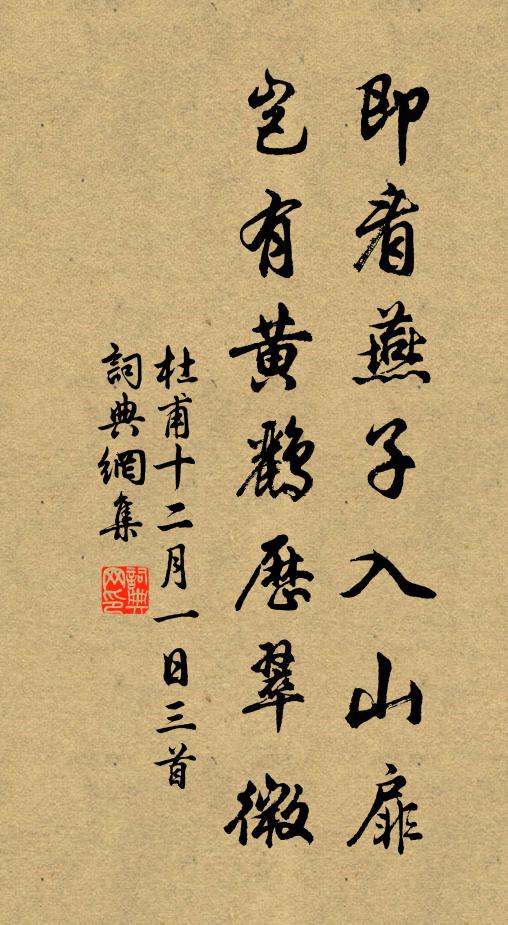 即看燕子入山扉
豈有黄鸝歷翠微
杜甫十二月一日三首
詞典網集
詞典网印